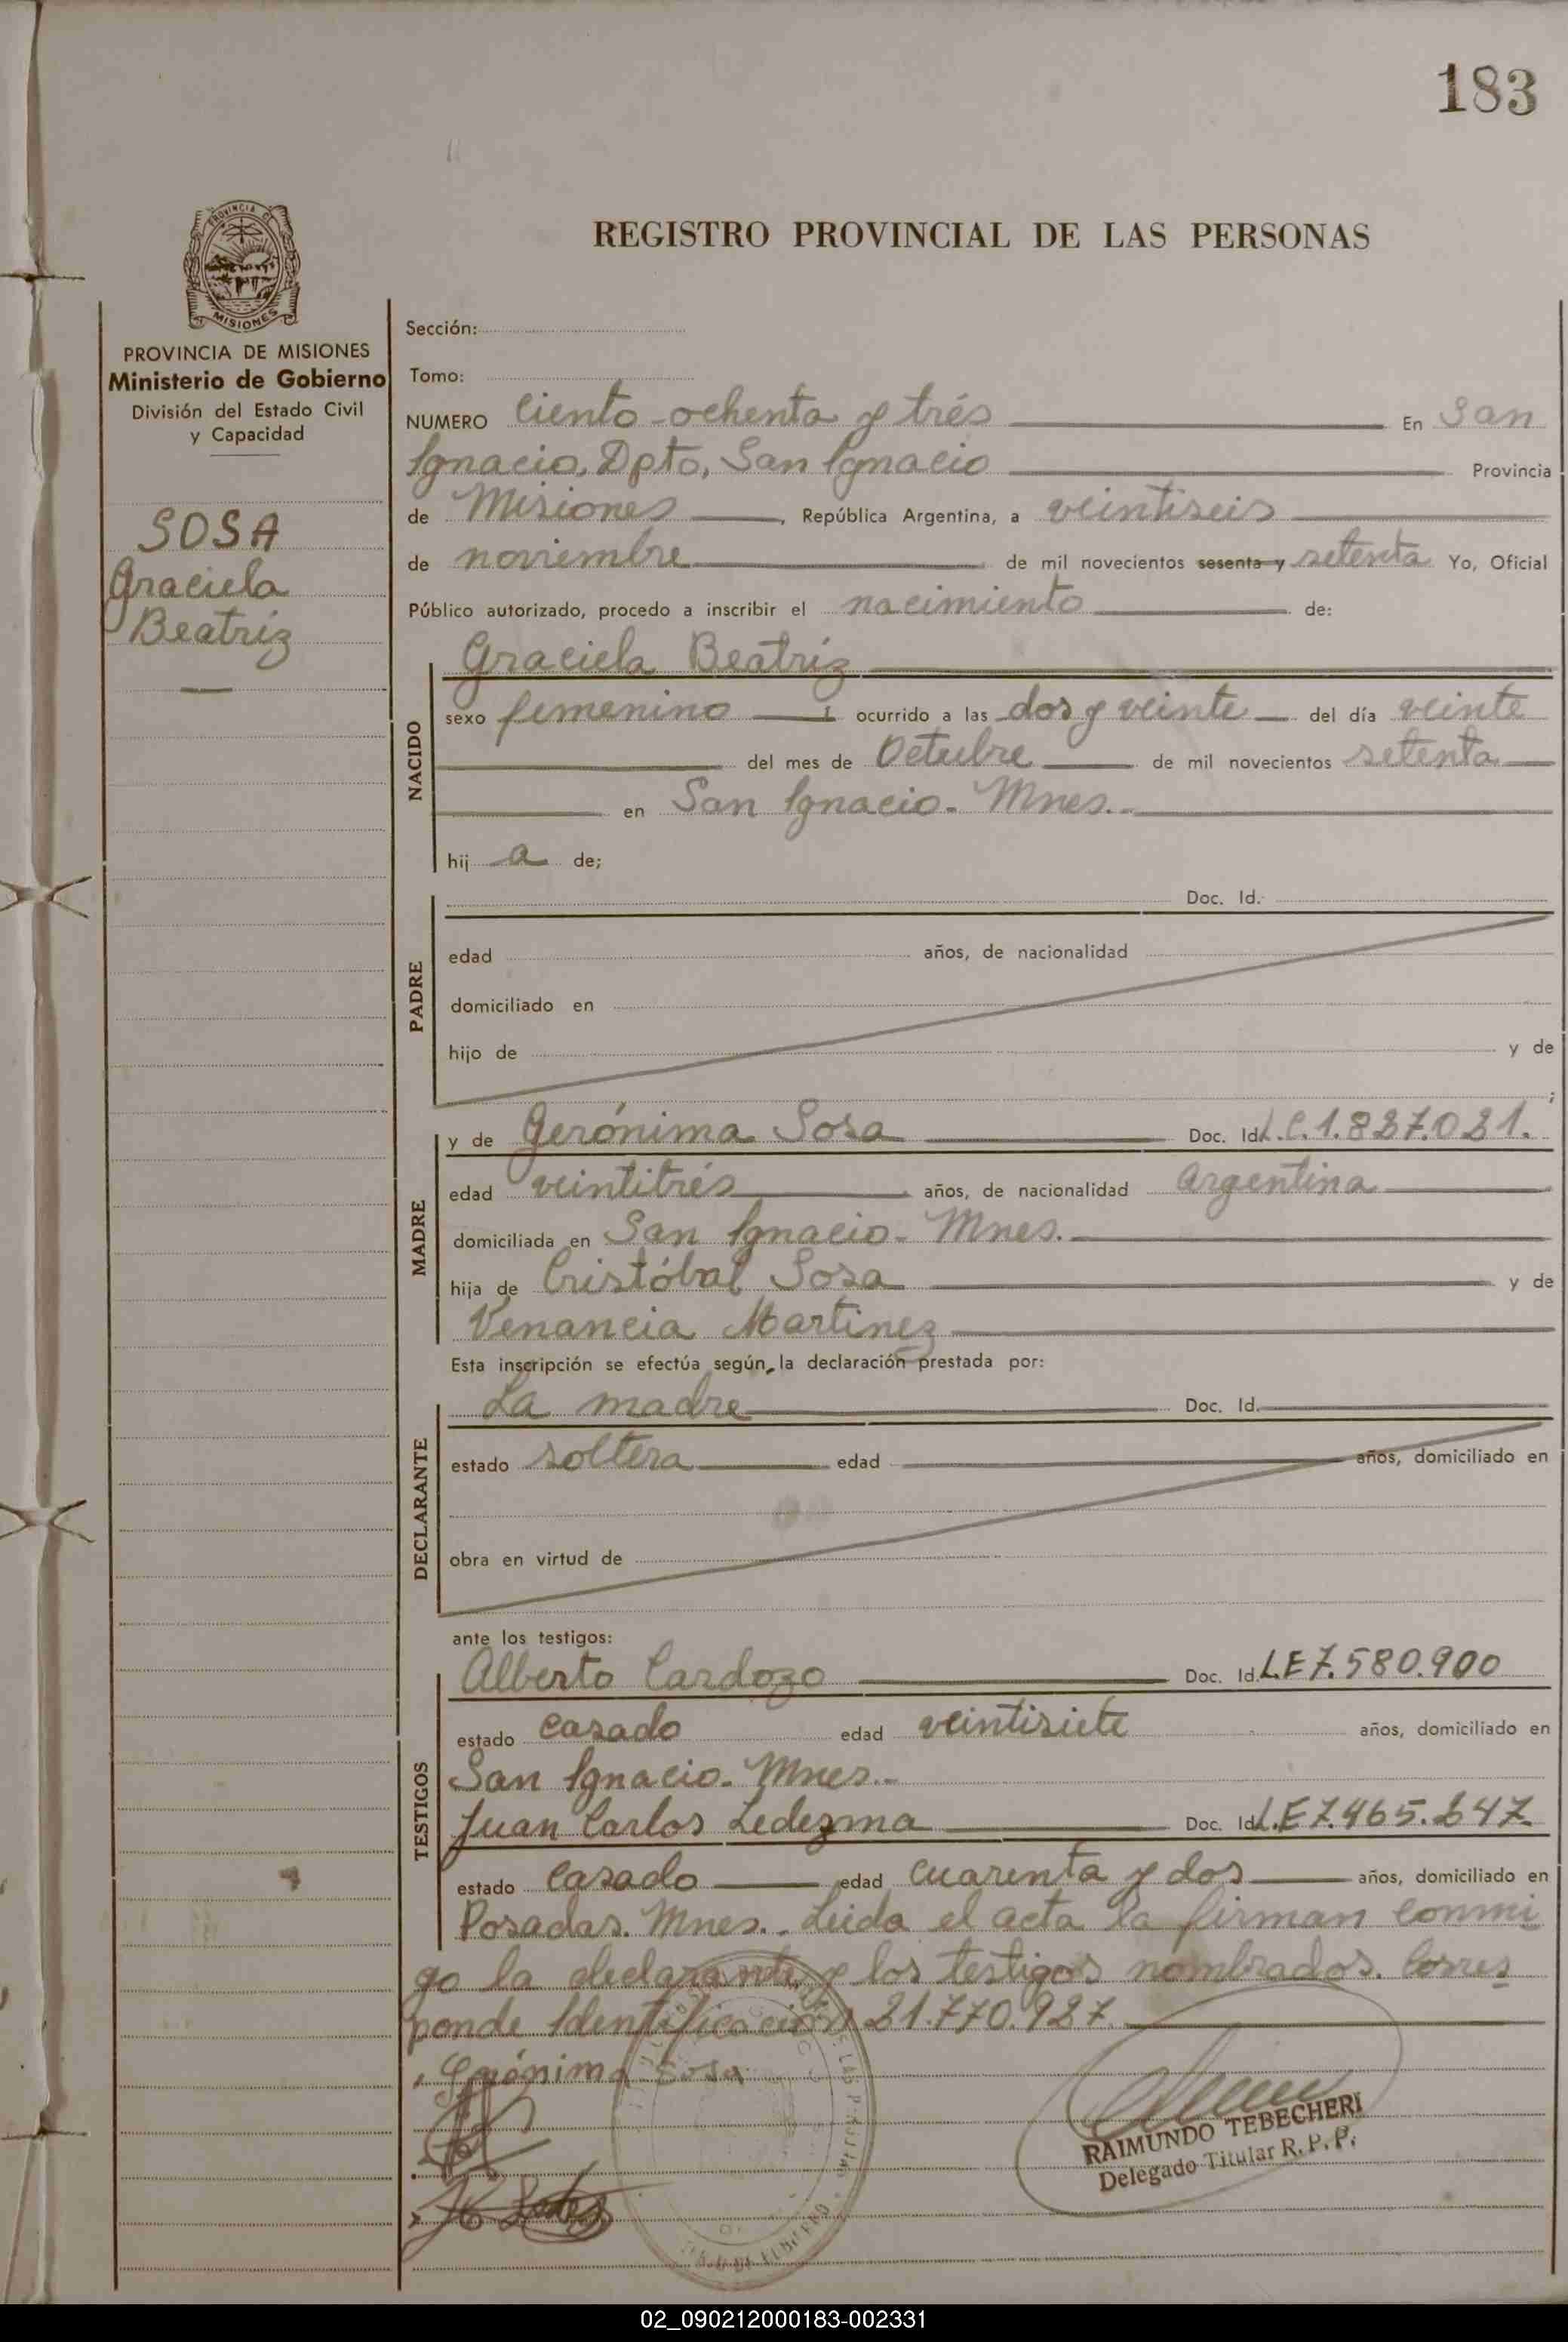 183
REGISTRO PROVINCIAL DE LAS PERSONAS
PROVINCIA DE MISIONES
Ministerio de Gobierno
División del Estado Civil
y Capacidad
SOSA
Graciela
Beatriz
Sección:
Tomo:
NUMERO Ciento ochenta y trés En San
Ignacio, Dpto, San Ignacio Provincia
de Misiones, República Argentina, a veintiseis
de noviembre de mil novecientos sesenta y setenta Yo, Oficial
Público autorizado, procedo a inscribir el nacimiento de:
NACIDO
Graciela Beatriz
sexo femenino ocurrido a las dos y veinte del día veinte
del mes de Octubre de mil novecientos setenta
en San Ignacio. Mnes.
hij a de;
PADRE
Doc. Id.
edad años, de nacionalidad
domiciliado en
hijo de y de
;
MADRE
y de Gerónima Sosa Doc. Id. L.C. 1.827.021.
edad veintitrés años, de nacionalidad argentina
domiciliada en San Ignacio. Mnes.
hija de Cristóbal Sosa y de
Venancia Martinez
Esta inscripción se efectúa según la declaración prestada por:
DECLARANTE
La madre Doc. Id.
estado soltera edad años, domiciliado en
obra en virtud de
ante los testigos:
TESTIGOS
Alberto Cardozo Doc. Id. L.E 7.580.900
estado casado edad veintisiete años, domiciliado en
San Ignacio. Mnes.
Juan Carlos Ledezma Doc. Id. L.E 7.465.647.
estado casado edad cuarenta y dos años, domiciliado en
Posadas. Mnes. Leida el acta la firman conmi
go la declarante y los testigos nombrados. Corres
ponde Identificación 21.770.927.
Gerónima Sosa
RAIMUNDO TEBECHERI
Delegado Titular R. P. P.
02_090212000183-002331